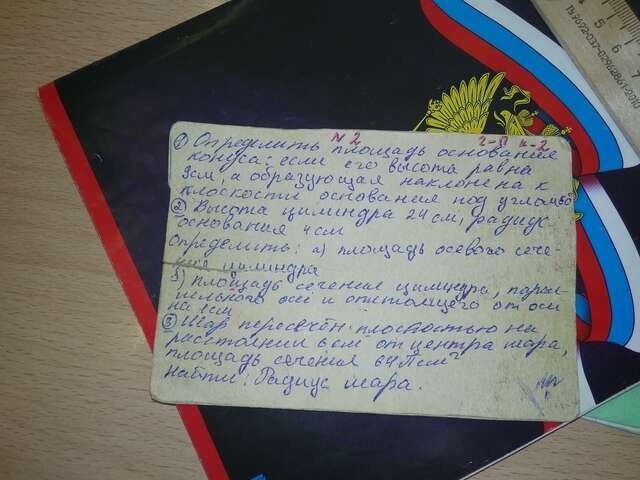 N 2
г-я к-2
① Определить площадь основания
конуса; если его высота равна
3см, а образующая наклонена к
плоскости основания под углом 60
② Высота цилиндра 24 см, радиус
основания 4 см
Определить: а) площадь осевого сече-
ния цилиндра
б) площадь сечения цилиндра, парал-
лельного оси и отстоящего от оси
на 1см
③ Шар пересечён плоскостью на
расстоянии 6см от центра шара,
площадь сечения 64Псм²
Найти: Радиус шара.
4 5 6 7